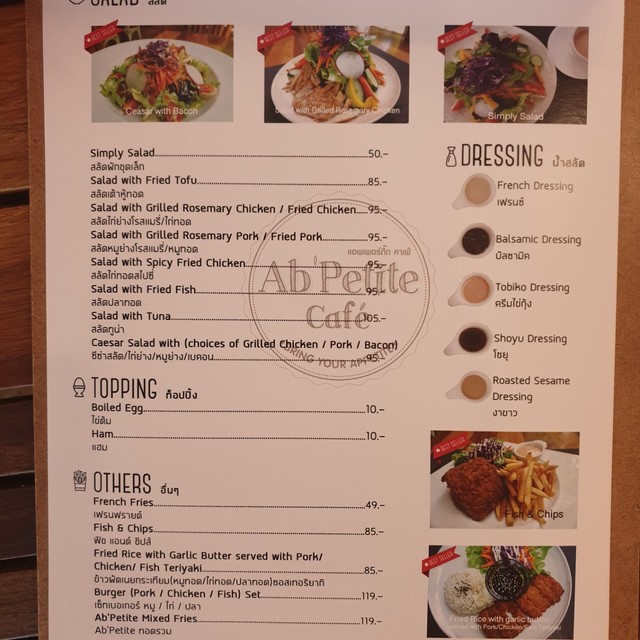 SALAD สลัด
BEST SELLER
Ceasar with Bacon
BEST SELLER
Salad with Grilled Rosemary Chicken
BEST SELLER
Simply Salad
Simply Salad 50.-
สลัดผักชุดเล็ก
Salad with Fried Tofu 85.-
สลัดเต้าหู้ทอด
Salad with Grilled Rosemary Chicken / Fried Chicken 95.-
สลัดไก่ย่างโรสแมรี่/ไก่ทอด
Salad with Grilled Rosemary Pork / Fried Pork 95.-
สลัดหมูย่างโรสแมรี่/หมูทอด
Salad with Spicy Fried Chicken 95.-
สลัดไก่ทอดสไปซี่
Salad with Fried Fish 95.-
สลัดปลาทอด
Salad with Tuna 105.-
สลัดทูน่า
Caesar Salad with (choices of Grilled Chicken / Pork / Bacon)
ซีซ่าสลัด/ไก่ย่าง/หมูย่าง/เบคอน 95.-
แอพเพอร์ทีท คาเฟ่
Ab'Petite
Café
BRING YOUR APPETITE
TOPPING ท็อปปิ้ง
Boiled Egg 10.-
ไข่ต้ม
Ham 10.-
แฮม
OTHERS อื่นๆ
French Fries 49.-
เฟรนฟรายด์
Fish & Chips 85.-
ฟิช แอนด์ ชิปส์
Fried Rice with Garlic Butter served with Pork/
Chicken/ Fish Teriyaki 85.-
ข้าวผัดเนยกระเทียม(หมูทอด/ไก่ทอด/ปลาทอด)ซอสเทอริยากิ
Burger (Pork / Chicken / Fish) Set 119.-
เซ็ทเบอเกอร์ หมู / ไก่ / ปลา
Ab'Petite Mixed Fries 119.-
Ab'Petite ทอดรวม
DRESSING น้ำสลัด
French Dressing
เฟรนซ์
Balsamic Dressing
บัลซามิค
Tobiko Dressing
ครีมไข่กุ้ง
Shoyu Dressing
โชยุ
Roasted Sesame
Dressing
งาขาว
BEST SELLER
Fish & Chips
BEST SELLER
Fried Rice with garlic butter
served with Pork/Chicken/Fish Teriyaki